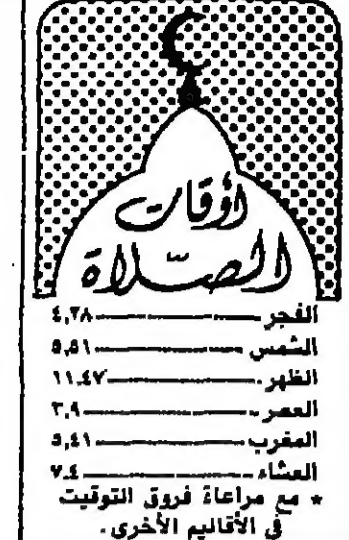 أوقات
الصلاة
الفجر ــــــ ٤,٢٨
الشمس ــــــ ٥,٥١
الظهر ــــــ ١١,٤٧
العصر ــــــ ٣,٩
المغرب ــــــ ٥,٤١
العشاء ــــــ ٧,٤
* مع مراعاة فروق التوقيت
في الأقاليم الأخرى .